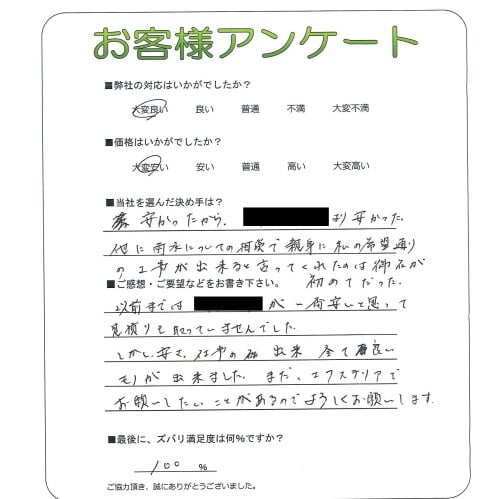 お客様アンケート
■弊社の対応はいかがでしたか？
大変良い 良い 普通 不満 大変不満
■価格はいかがでしたか？
大変安い 安い 普通 高い 大変高い
■当社を選んだ決め手は？
安かったから。 より安かった。
他に雨水についての相談で親身に私の希望通り
の工事が出来ると言ってくれたのは御社が
初めてだった。
■ご感想・ご要望などをお書き下さい。
以前までは が一番安いと思って
見積りも取っていませんでした。
しかし、安さ、仕事の 出来 全て 良い
モノが出来ました。また、エクステリアで
お願いしたいことがあるのでよろしくお願いします。
■最後に、ズバリ満足度は何%ですか？
100 %
ご協力頂き、誠にありがとうございました。